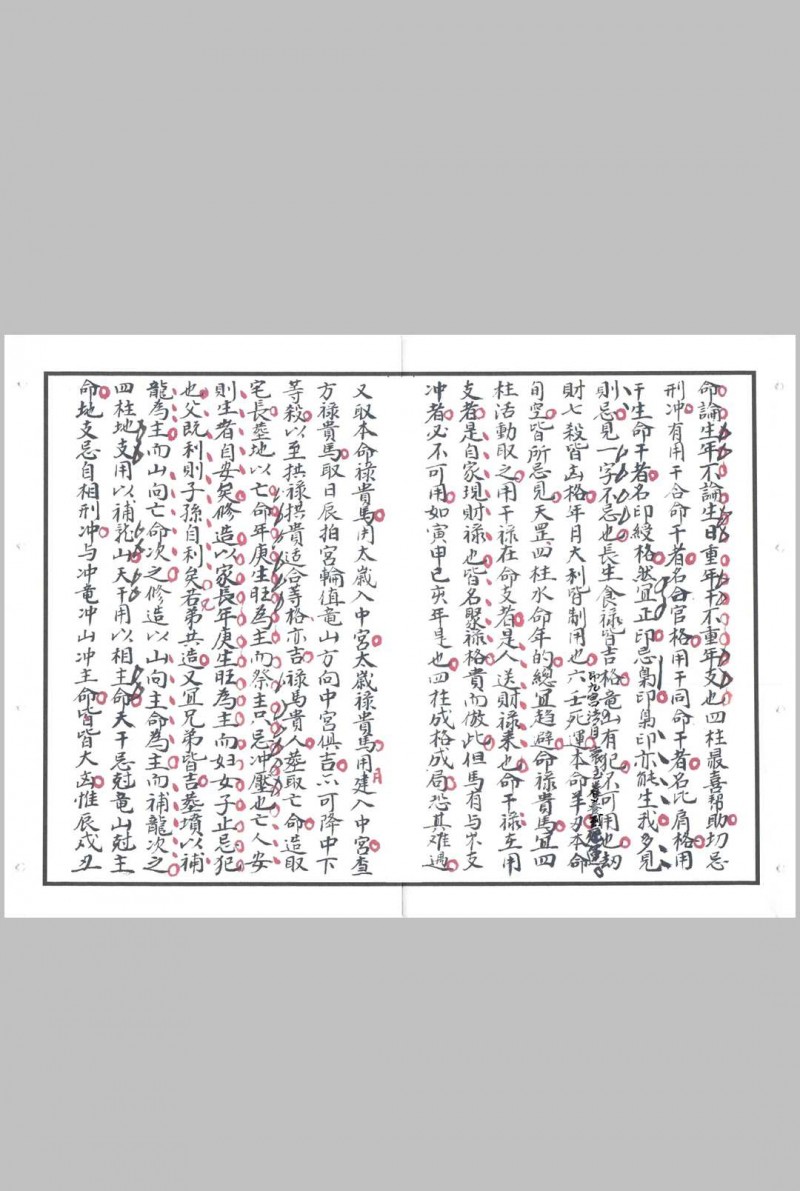 命論生年不論生日重年干不重年支也四柱最喜幫助切忌
刑冲有用干合命干者名合官格用干同命干者名比肩格用
干生命干者名印綬格然宜正印忌梟印梟印亦能生我多見
則忌見一字不忌也長生食禄皆吉格竜山有犯不可用也劫
財七殺皆凶格年月大利皆制用也六壬死運本命羊刃本命
旬空皆所忌見天罡四柱水命年的總宜趋避命禄貴馬宜四
柱活動取之用干禄在命支者是人送財禄来也命干禄在用
支者是自家現財禄也皆名聚禄格貴而倣此但馬有与岁支
冲者必不可用如寅申巳亥年是也四柱成格成局恐其难遇
又取本命禄貴馬用太嵗入中宮太嵗禄貴馬用月建入中宮查
方禄貴馬取日辰拍宮輪值竜山方向中宮俱吉亦可降中下
等殺以至拱禄拱貴适合等格亦吉禄馬貴人塟取亡命造取
宅長塟地以亡命年庚生旺為主而祭主只忌冲壓也亡人安
則生者自安矣修造以家長年庚生旺為主而妇女子止忌犯
也父既利則子孫自利矣若弟兄共造又宜兄弟皆吉塟墳以補
龍為主而山向亡命次之修造以山向主命為主而補龍次之
四柱地支用以補龙山天干用以相主命天干忌尅竜山尅主
命地支忌自相刑冲与冲竜冲山冲主命皆皆大凶惟辰戍丑